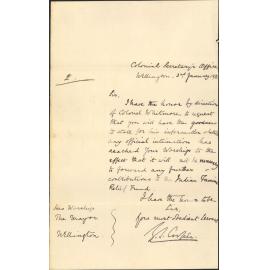 Colonial Secretary's Office
Wellington, 3rd January 18
Sir,
I have the honor by direction
of Colonel Whitmore to request
that you will have the goodness
to state for his information whether
any official intimation has
reached Your Worship to the
effect that it will not be necessary
to forward any further
contributions to the Indian Famine
Relief Fund
I have the honor to be
Sir,
Your most obedient Servant
His Worship
The Mayor
Wellington